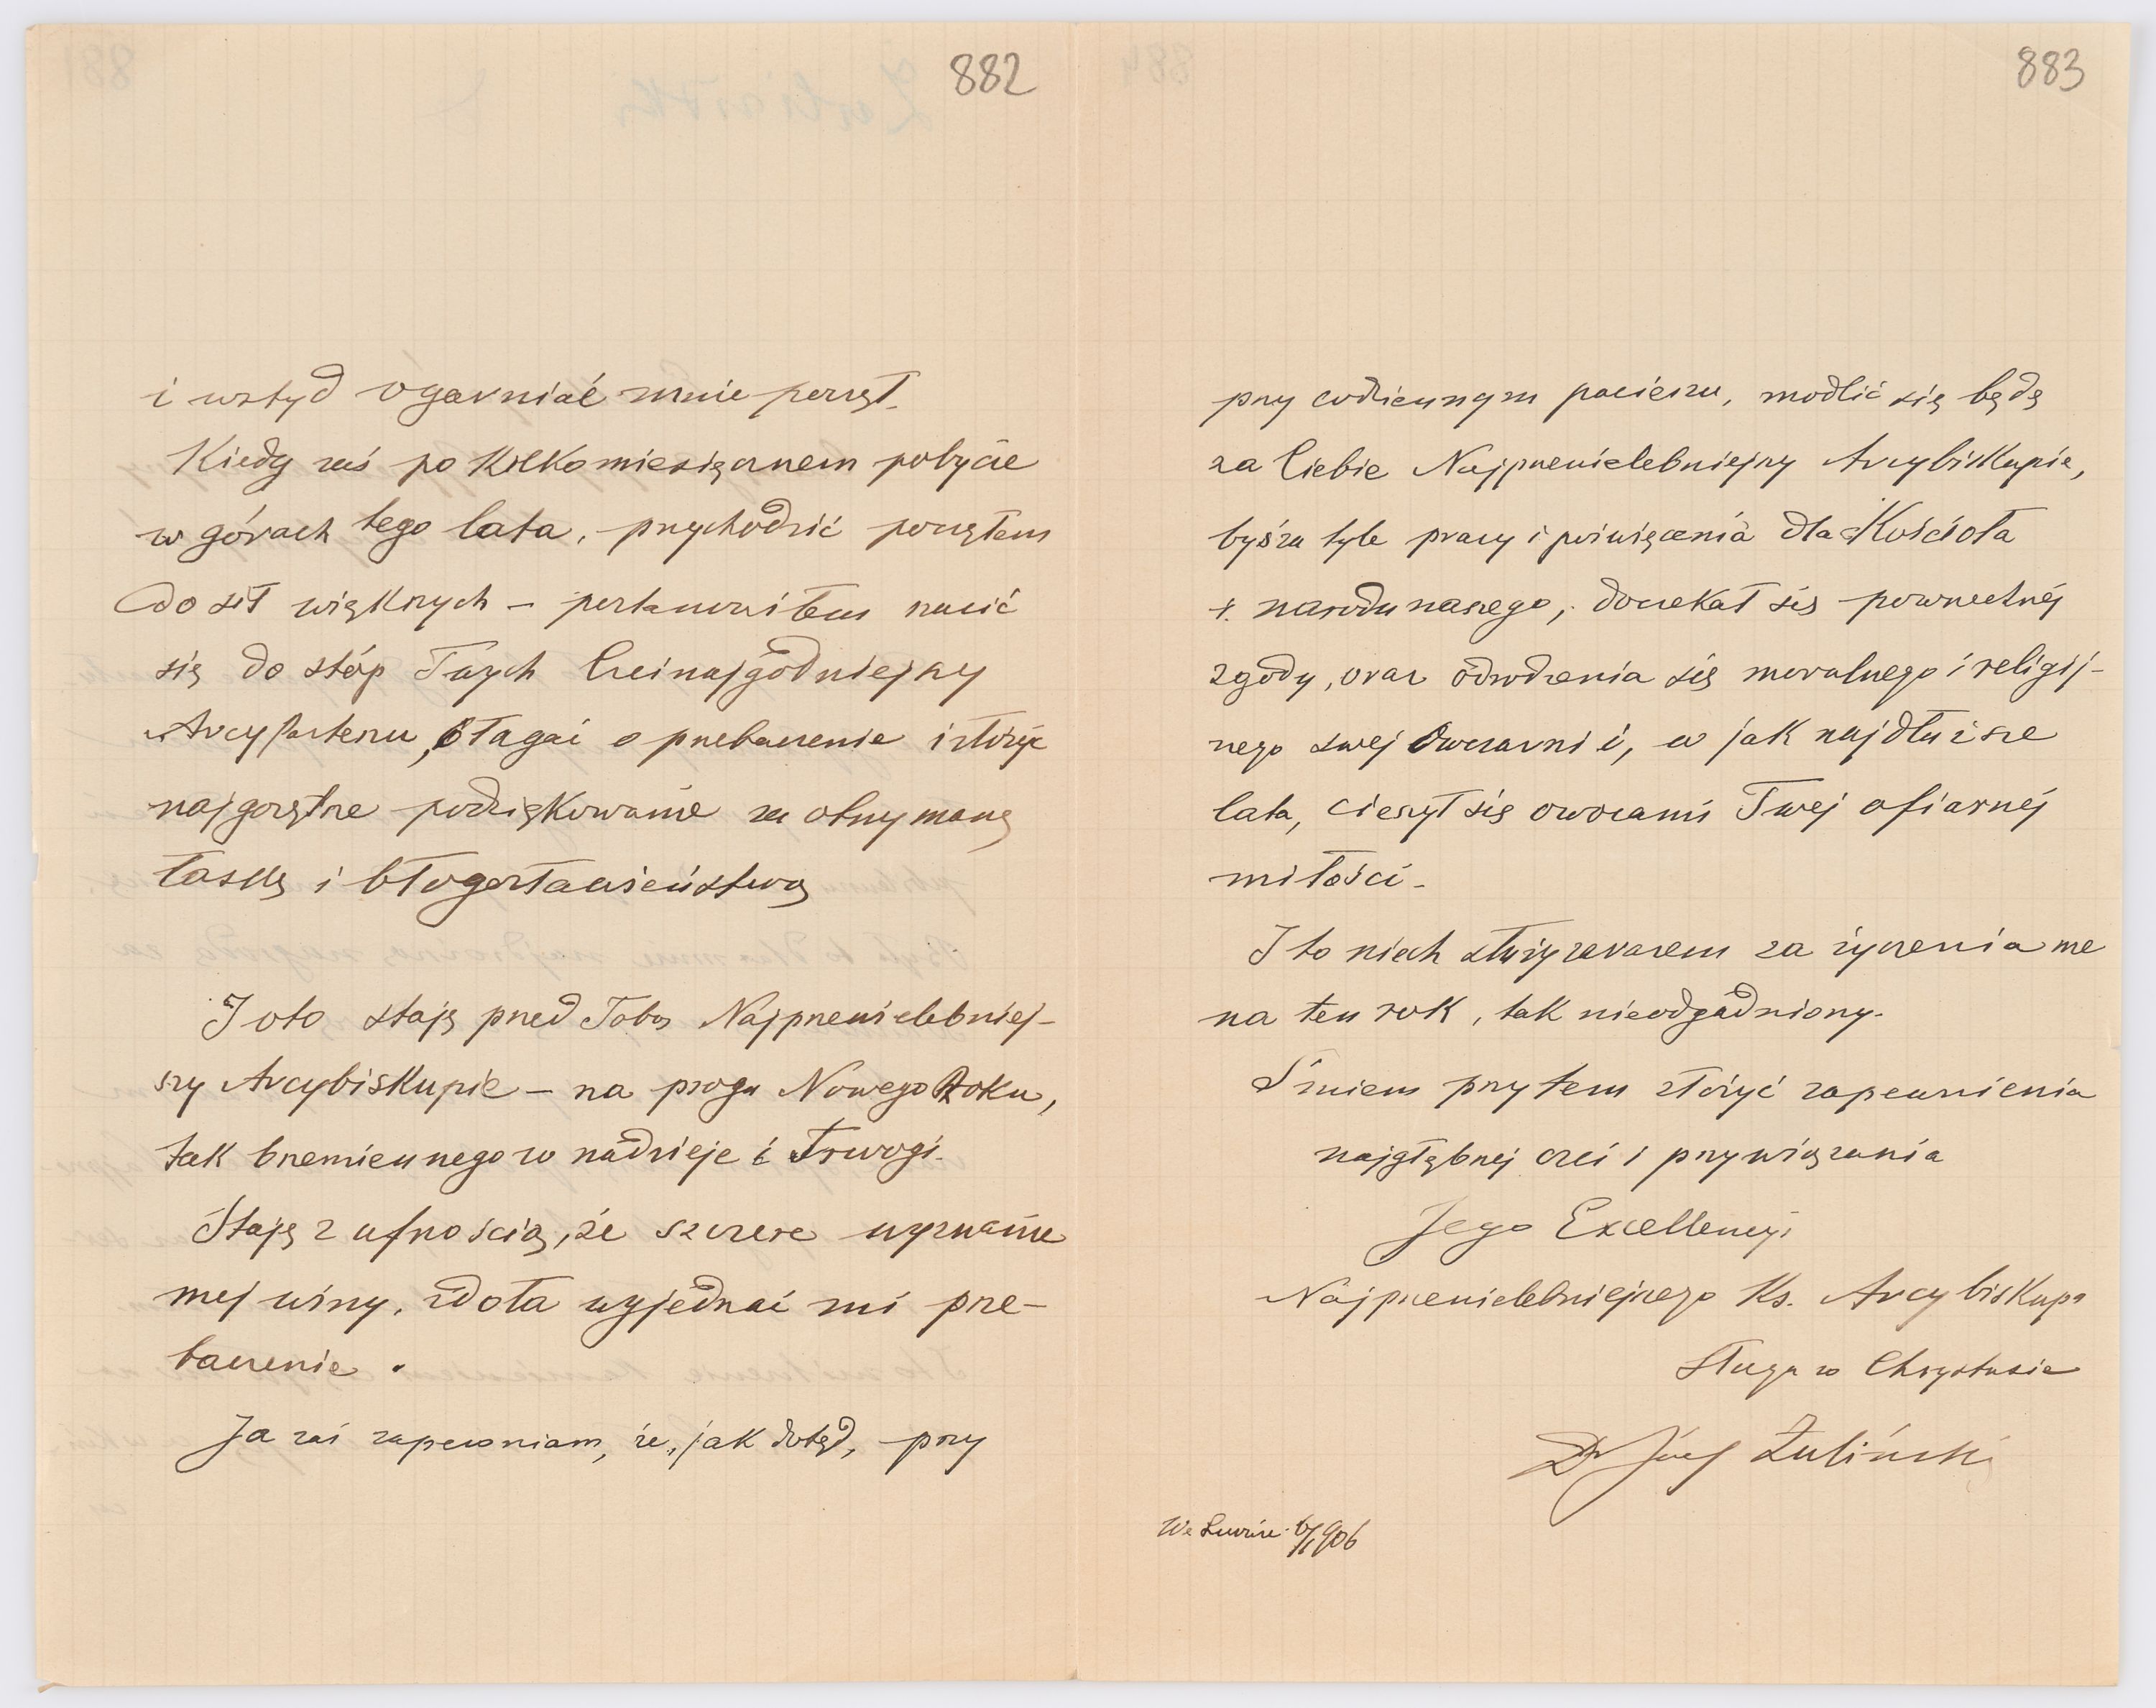 882
i wstyd ogarniać mnie począł.
Kiedy zaś po kilkomiesięcznem pobycie
w górach tego lata, przychodzić począłem
do sił większych – postanowiłem rzucić
się do stóp Twych Czcinajgodniejszy
Arcypasterzu, błagać o przebaczenie i złożyć
najgorętsze podziękowanie za otrzymaną
łaskę i błogosławieństwo
I oto staję przed Tobą Najprzewielebniej-
szy Arcybiskupie – na progu Nowego Roku,
tak brzemiennego w nadzieje i trwogi.
Staję z ufnością, że szczere wyznanie
mej winy, zdoła wyjednać mi prze-
baczenie.
Ja zaś zapewniam, że, jak dotąd, przy
883
przy codziennym pacierzu, modlić się będę
za Ciebie Najprzewielebniejszy Arcybiskupie,
byś za tyle pracy i poświęcenia dla Kościoła
i narodu naszego, doczekał się powszechnéj
zgody, oraz odrodzenia się moralnego i religij-
nego swej owczarni i, w jak najdłuższe
lata, cieszył się owocami Twej ofiarnéj
miłości.
I to niech służy zarazem za życzenia me
na ten rok, tak nieodgadniony.
Śmiem przytem złożyć zapewnienia
najgłębszej czci i przywiązania
Jego Excellencyi
Najprzewielebniejszego Ks. Arcybiskupa
sługa w Chrystusie
Dr Józef Żuliński
We Lwowie 6/I 906